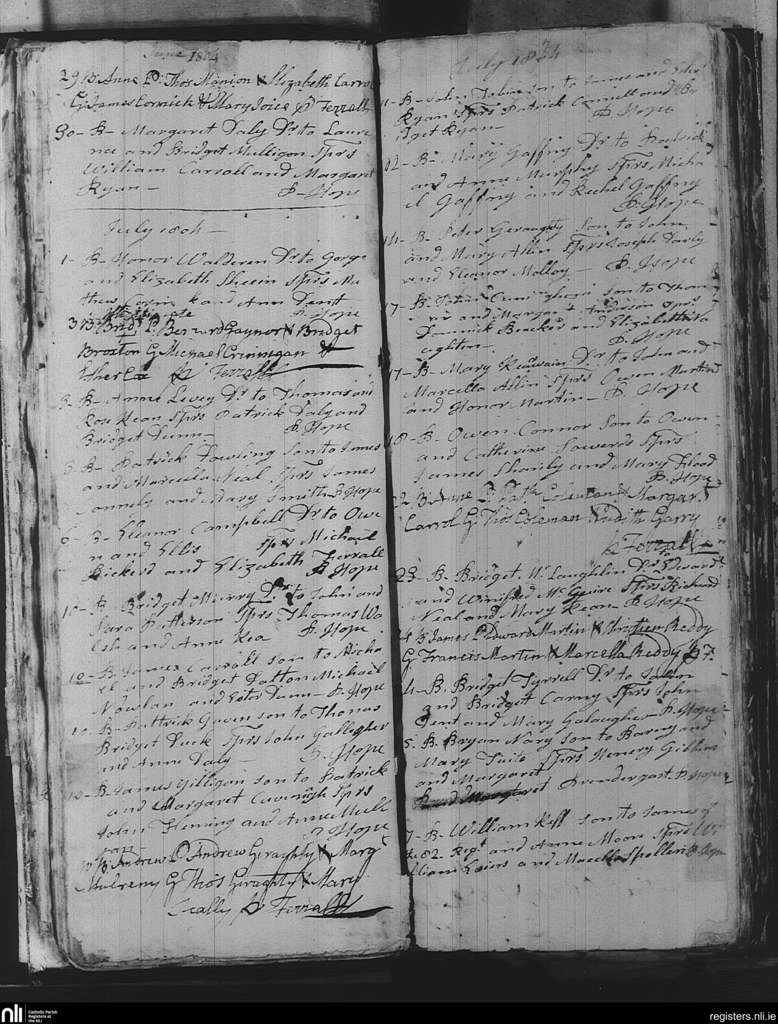 June 1804
29 B Anne P Thos Manion & Elizabeth Carrol
G James Cormick & Mary Joice P Ferrall
30 - B - Margaret Daly Dr to Laure
nce and Bridget Mulligon Sprs
William Carroll and Margaret
Ryan - P - Hope
July 1804 -
1 - B - Honor Waldren Dr to Gorge
and Elizabeth Sheein Sprs Ma
thew and Ann Dent
P. Hope
3 B Bridt P Bernard Gaynor & Bridget
G Michael &
P Ferrall
3 - B - Anne Levey Dr to Thomas and
Rose Kean Sprs Patrick Daly and
Bridget Dunn - P. Hope
5 - B - Patrick Dowling son to James
and Marcella Neal Sprs James
Connely and Mary Smith P Hope
6 - B - Eleanor Campbell Dr to Owe
n and Ellis Sprs Michael
and Elizabeth Ferrall
P Hope
B. Bridget Murry Dr to John and
Sara Patterson Sprs Thomas Wa
lsh and Anne Kea P. Hope
10 - B. James Carroll son to Micha
el and Bridget Dalton Michael
Nowlan and Ester Dunn - P. Hope
B - Pattrick Gaven son to Thomas
Bridget Luck Sprs John Gallegher
and Anne Daly - P. Hope
B - James Gilligan son to Patrick
and Margaret Cavenagh Sprs
John Fleming and Anne Mull
P Hope
B Andrew P Andrew Geraghty & Margt
Mulreny G Thos Geraghty & Mary
Scally P Ferrall
July 1804
B - John son to James and
Ryan Sprs Patrick Connell and Br
idget Ryan - P Hope
12 - B - Mary Gaffny Dr to Patrick
and Anne Murphy Sprs Micha
el Gaffny and Rechel Gaffny
P. Hope
14 - B - Peter Geraughty son to John
and Mary Atkin Sprs Joseph Darly
and Eleonor Molloy - P. Hope
17 - B. son to Thom
and Margaret Sprs
Dominick and Elizabeth
P. Hope
17 - B - Mary Dr to John and
Marcella Atkin Sprs Owen Martin
and Honor Martin - P. Hope
18 - B - Owen Connor Son to Owen
and Catherine Sprs
James and Mary Flood
P. Hope
22 B Anne P Patk Coleman & Margart
Carrol G Thos Coleman & Judith Garry
P Ferrall
23 - B. Bridget McLaughlin Dr Edward
and Winifred McGuire Sprs Richard
Neal and Mary Kean P Hope
24 B James P Edward Martin & Christien Reddy
G Francis Martin & Marcella Reddy P F.
4 - B. Bridget Tyrrell Dr to John
and Bridget Carny Sprs John
Dent and Mary Galaugher P. Hope
5 B. Bryan Nary son to Barny and
Mary Tuite Sprs Henery Gibbins
and Margaret
Prendergast P Hope
7 - B - William son to James of
the 82 Regt and Anne Moore Sprs Wi
lliam and P Hope
nli
Catholic Parish
Registers at
the NLI
registers.nli.ie